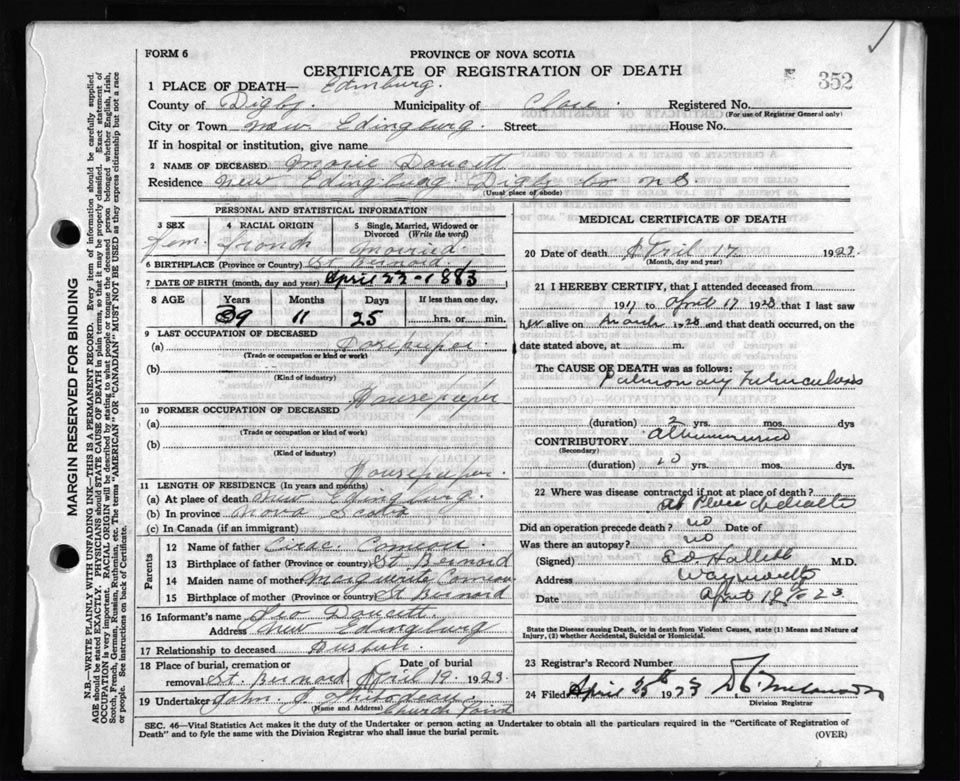 FORM 6
PROVINCE OF NOVA SCOTIA
CERTIFICATE OF REGISTRATION OF DEATH
352
1 PLACE OF DEATH— Edinburg.
County of Digby. Municipality of Clare. Registered No.
(For use of Registrar General only)
City or Town New Edingburg. Street House No.
If in hospital or institution, give name
2 NAME OF DECEASED Marie Doucett
Residence New Edingburg Digby Co N S
(Usual place of abode)
PERSONAL AND STATISTICAL INFORMATION
3 SEX 4 RACIAL ORIGIN 5 Single, Married, Widowed or Divorced (Write the word)
Fem. French Married.
6 BIRTHPLACE (Province or Country) St Bernard.
7 DATE OF BIRTH (month, day and year) April 22-1883
8 AGE Years Months Days If less than one day,
39 11 25 hrs. or min.
9 LAST OCCUPATION OF DECEASED
(a)
(Trade or occupation or kind or work)
(b)
(Kind of industry)
Housepeeper
10 FORMER OCCUPATION OF DECEASED
(a)
(Trade or occupation or kind of work)
(b)
(Kind of industry)
Housepeeper.
11 LENGTH OF RESIDENCE (In years and months)
(a) At place of death New Edingburg.
(b) In province Nova Scotia
(c) In Canada (if an immigrant)
Parents
12 Name of father Comeau.
13 Birthplace of father (Province or country) St Bernard
14 Maiden name of mother Marguerite Comeau
15 Birthplace of mother (Province or country) St Bernard
16 Informant's name Leo Doucett
Address New Edingburg
17 Relationship to deceased
18 Place of burial, cremation or removal St. Bernard Date of burial April 19. 1923.
19 Undertaker John J Thibodeau
(Name and Address) Church Point
MEDICAL CERTIFICATE OF DEATH
20 Date of death April 17 1923.
(Month, day and year)
21 I HEREBY CERTIFY, that I attended deceased from
1917 to April 17 1923 that I last saw
her alive on March 1923 and that death occurred, on the
date stated above, at m.
The CAUSE OF DEATH was as follows:
Pulmonary Tuberculosis
(duration) 2 yrs. mos. dys
CONTRIBUTORY
(Secondary)
(duration) 10 yrs. mos. dys
22 Where was disease contracted if not at place of death?
at Place
Did an operation precede death? no Date of
Was there an autopsy? no
(Signed) Hallett M.D.
Address Weymouth
Date April 19th 23
State the Disease causing Death, or in death from Violent Causes, state (1) Means and Nature of Injury, (2) whether Accidental, Suicidal or Homicidal.
23 Registrar's Record Number
24 Filed April 25th 1923
Division Registrar
SEC. 46—Vital Statistics Act makes it the duty of the Undertaker or person acting as Undertaker to obtain all the particulars required in the "Certificate of Registration of
Death" and to fyle the same with the Division Registrar who shall issue the burial permit.
(OVER)
MARGIN RESERVED FOR BINDING
N.B.—WRITE PLAINLY WITH UNFADING INK—THIS IS A PERMANENT RECORD. Every item of information should be carefully supplied.
AGE should be stated EXACTLY. PHYSICIANS should STATE CAUSE OF DEATH in plain terms, so that it may be properly classified. Exact statement of
OCCUPATION is very important. RACIAL ORIGIN will be described by stating to what people or tongue the deceased person belonged whether English, Irish,
Scotch, French, German, Russian, Ruthenian, etc. The terms "AMERICAN" or "CANADIAN" MUST NOT BE USED as they express citizenship but not a race
or people. See instructions on back of Certificate.